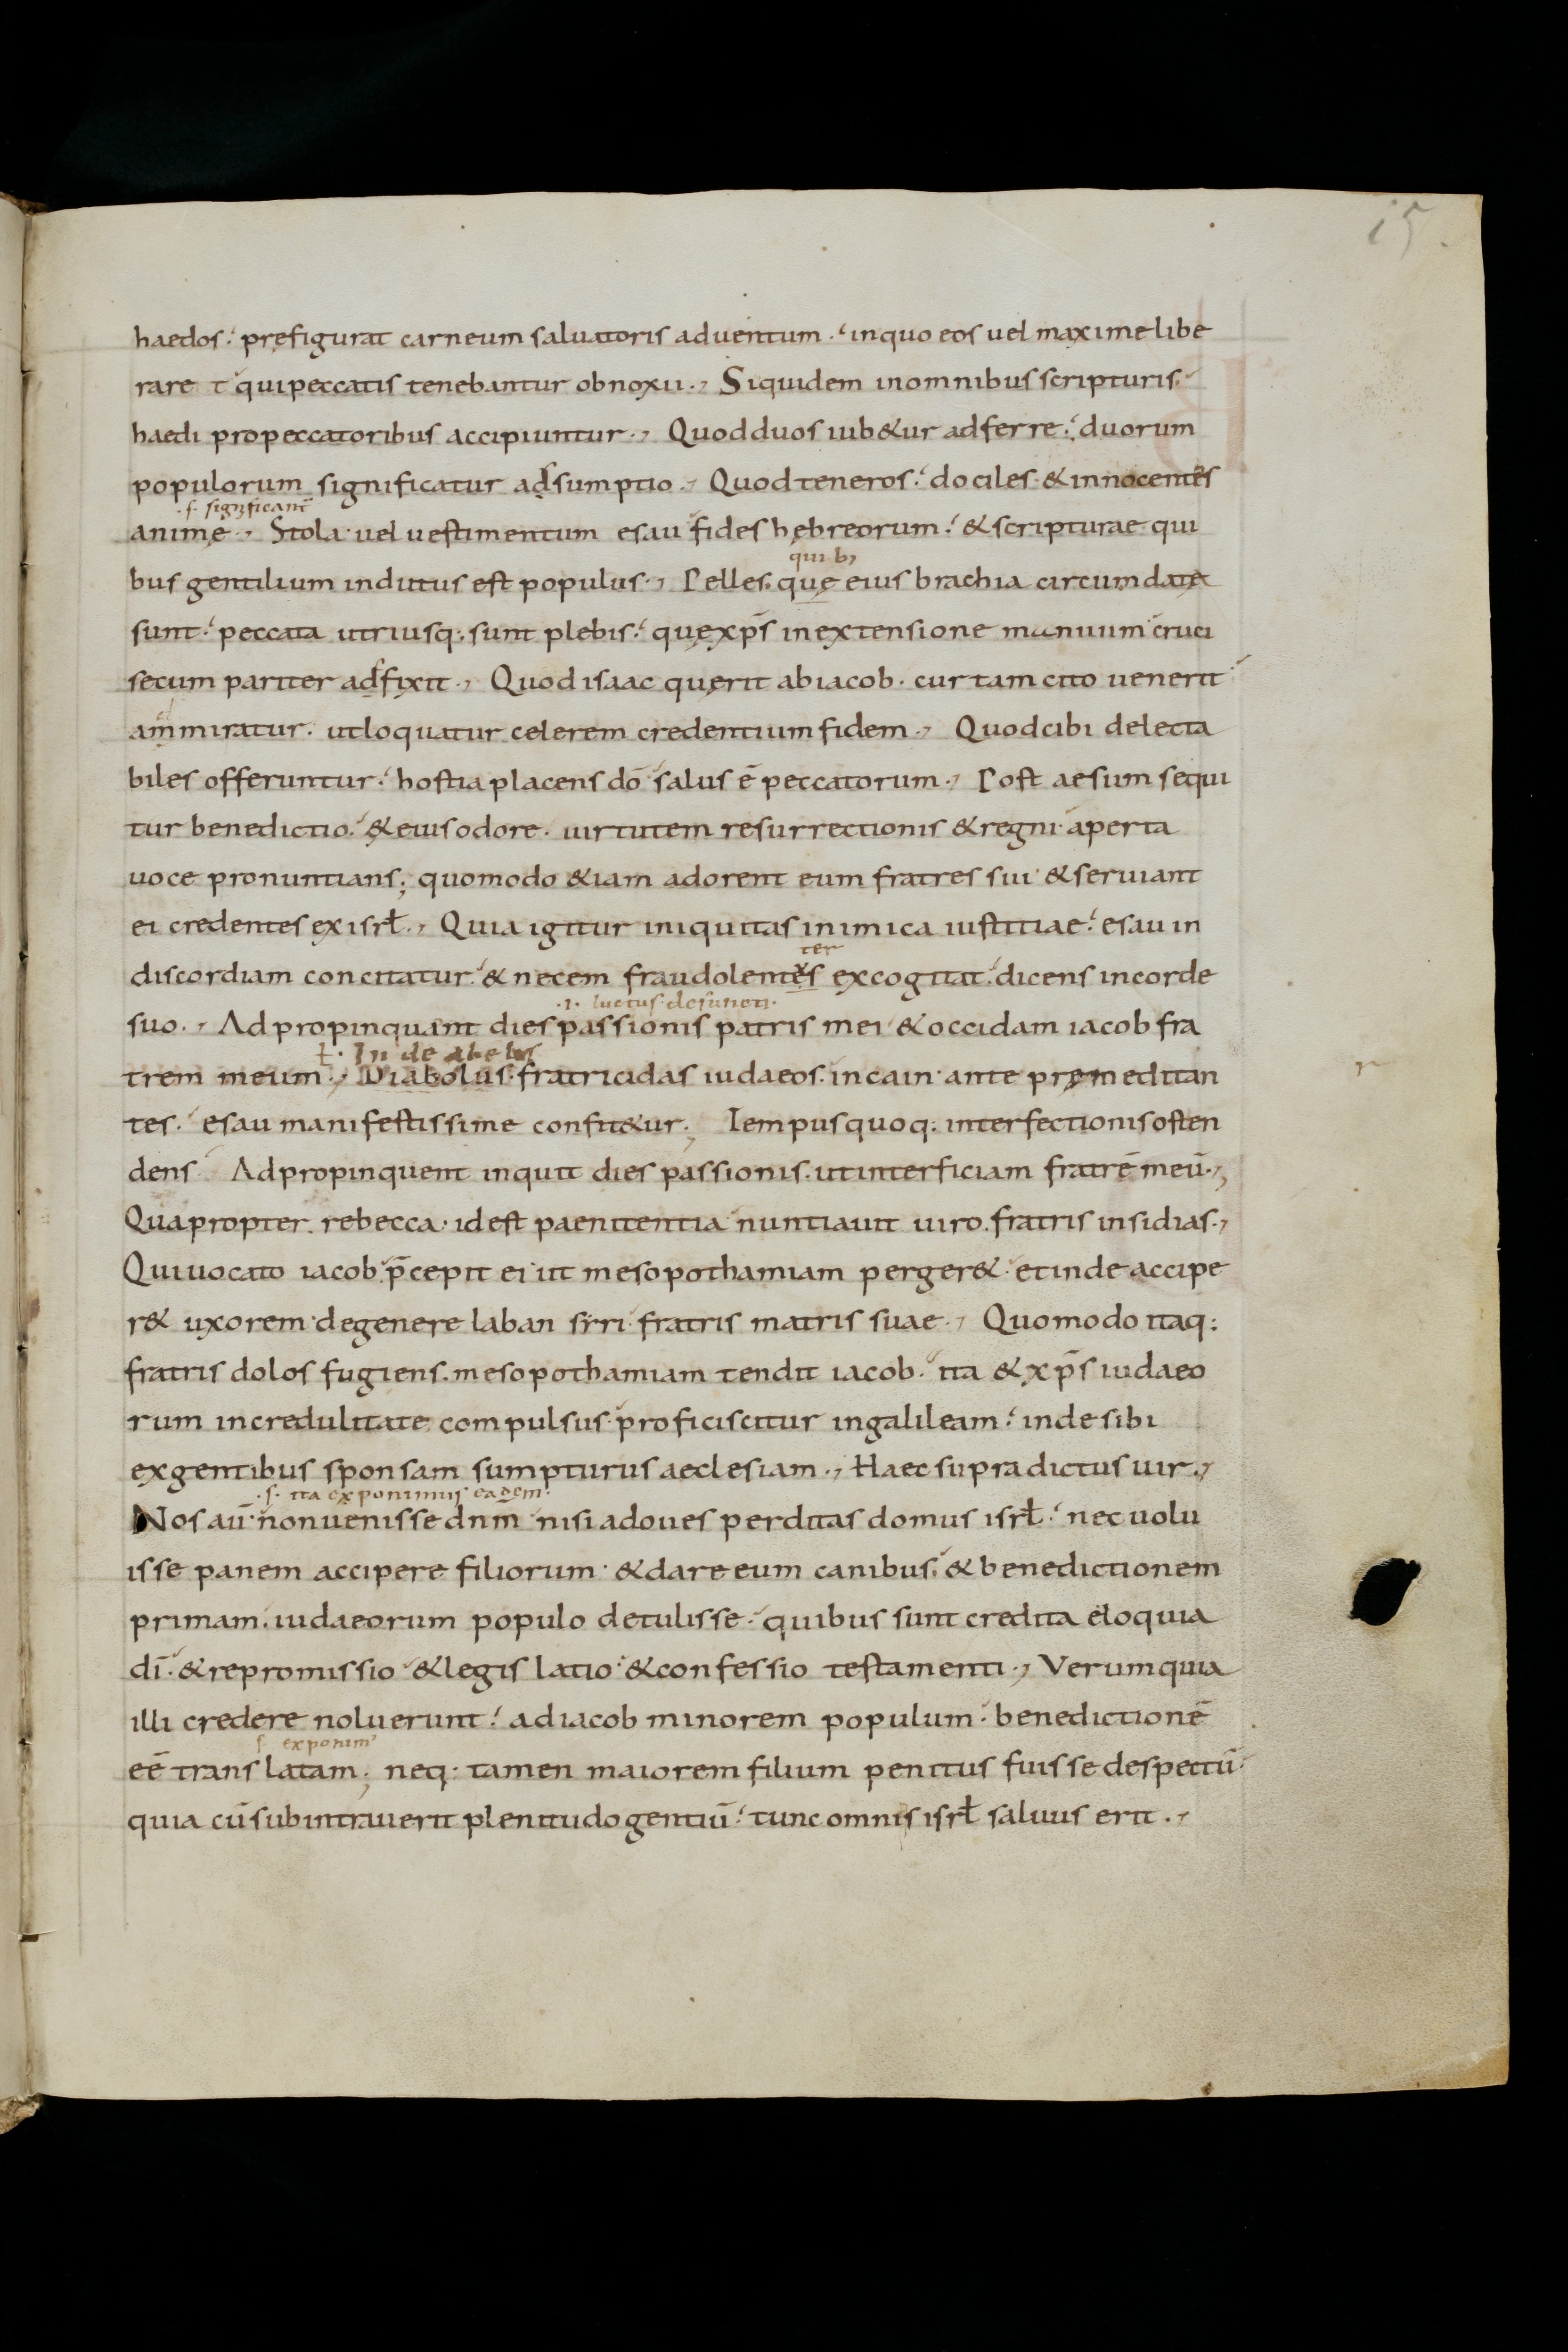 15.
haedos. prefigurat carneum saluatoris aduentum. in quo eos uel maxime libe
rare t qui peccatis tenebantur obnoxii. Siquidem in omnibus scripturis
haedi pro peccatoribus accipiuntur. Quod duos iub&ur adferre. duorum
populorum significatur adsumptio. Quod teneros. dociles & innocentes
.s. significant
animę. Stola uel uestimentum esau fides hębreorum. & scripturae qui
quib;
bus gentilium indutus est populus. Pelles. quę eius brachia circumdatę
sunt. peccata utriusq; sunt plebis. quę xp̄s in extensione manuum cruci
secum pariter adfixit. Quod isaac querit ab iacob. cur tam cito uenerit
ammiratur. ut loquatur celerem credentium fidem. Quod cibi delecta
biles offeruntur. hostia placens dō salus ē peccatorum. Post aesum sequi
tur benedictio. & eius odore. uirtutem resurrectionis & regni aperta
uoce pronuntians; quomodo &iam adorent eum fratres sui & seruiant
ei credentes ex isrł. Quia igitur iniquitas inimica iustitiae. esau in
ter
discordiam concitatur. & necem fraudolentes excogitat. dicens in corde
.i. luctus defuncti.
suo. Adpropinquant dies passionis patris mei & occidam iacob fra
ł. In de
trem meum. Diabolus. fratricidas iudaeos. in cain ante premeditan
tes. esau manifestissime confit&ur; Tempus quoq; interfectionis osten
dens Adpropinquent inquit dies passionis. ut interficiam fratrē meū.
Quapropter rebecca. id est paenitentia nuntiauit uiro. fratris insidias.
Qui uocato iacob p̄cepit ei ut mesopothamiam perger& et inde accipe
r& uxorem de genere laban siri fratris matris suae. Quomodo itaq;
fratris dolos fugiens. mesopothamiam tendit iacob. ita & xp̄s iudaeo
rum incredulitate compulsus proficiscitur in galileam. inde sibi
ex gentibus sponsam sumpturus aeclesiam. Haec supra dictus uir.
.s. ita exponimus eadem.
Nos aū non uenisse dnm̄ nisi ad oues perditas domus isrł. nec uolu
isse panem accipere filiorum & dare eum canibus. & benedictionem
primam. iudaeorum populo detulisse. quibus sunt credita eloquia
dī. & repromissio & legis latio & confessio testamenti. Verum quia
illi credere noluerunt. ad iacob minorem populum. benedictionē
s. exponim'
eē translatam; neq; tamen maiorem filium penitus fuisse despectū.
quia cū subintrauerit plenitudo gentiū. tunc omnis isrł saluus erit.